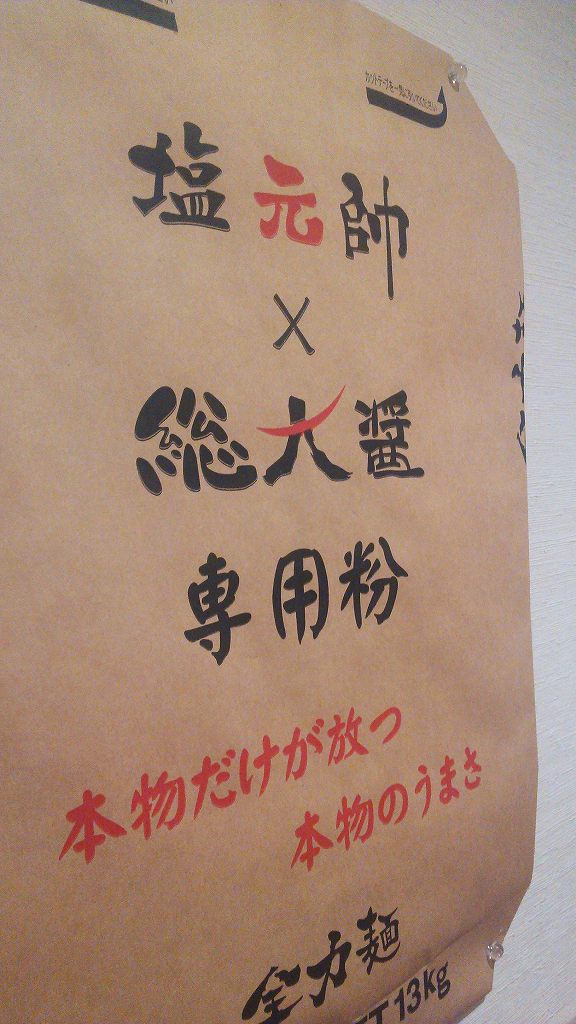 カットテープを一気に引いてください
塩元帥
×
総大醤
専用粉
本物だけが放つ
本物のうまさ
全力麺
13kg